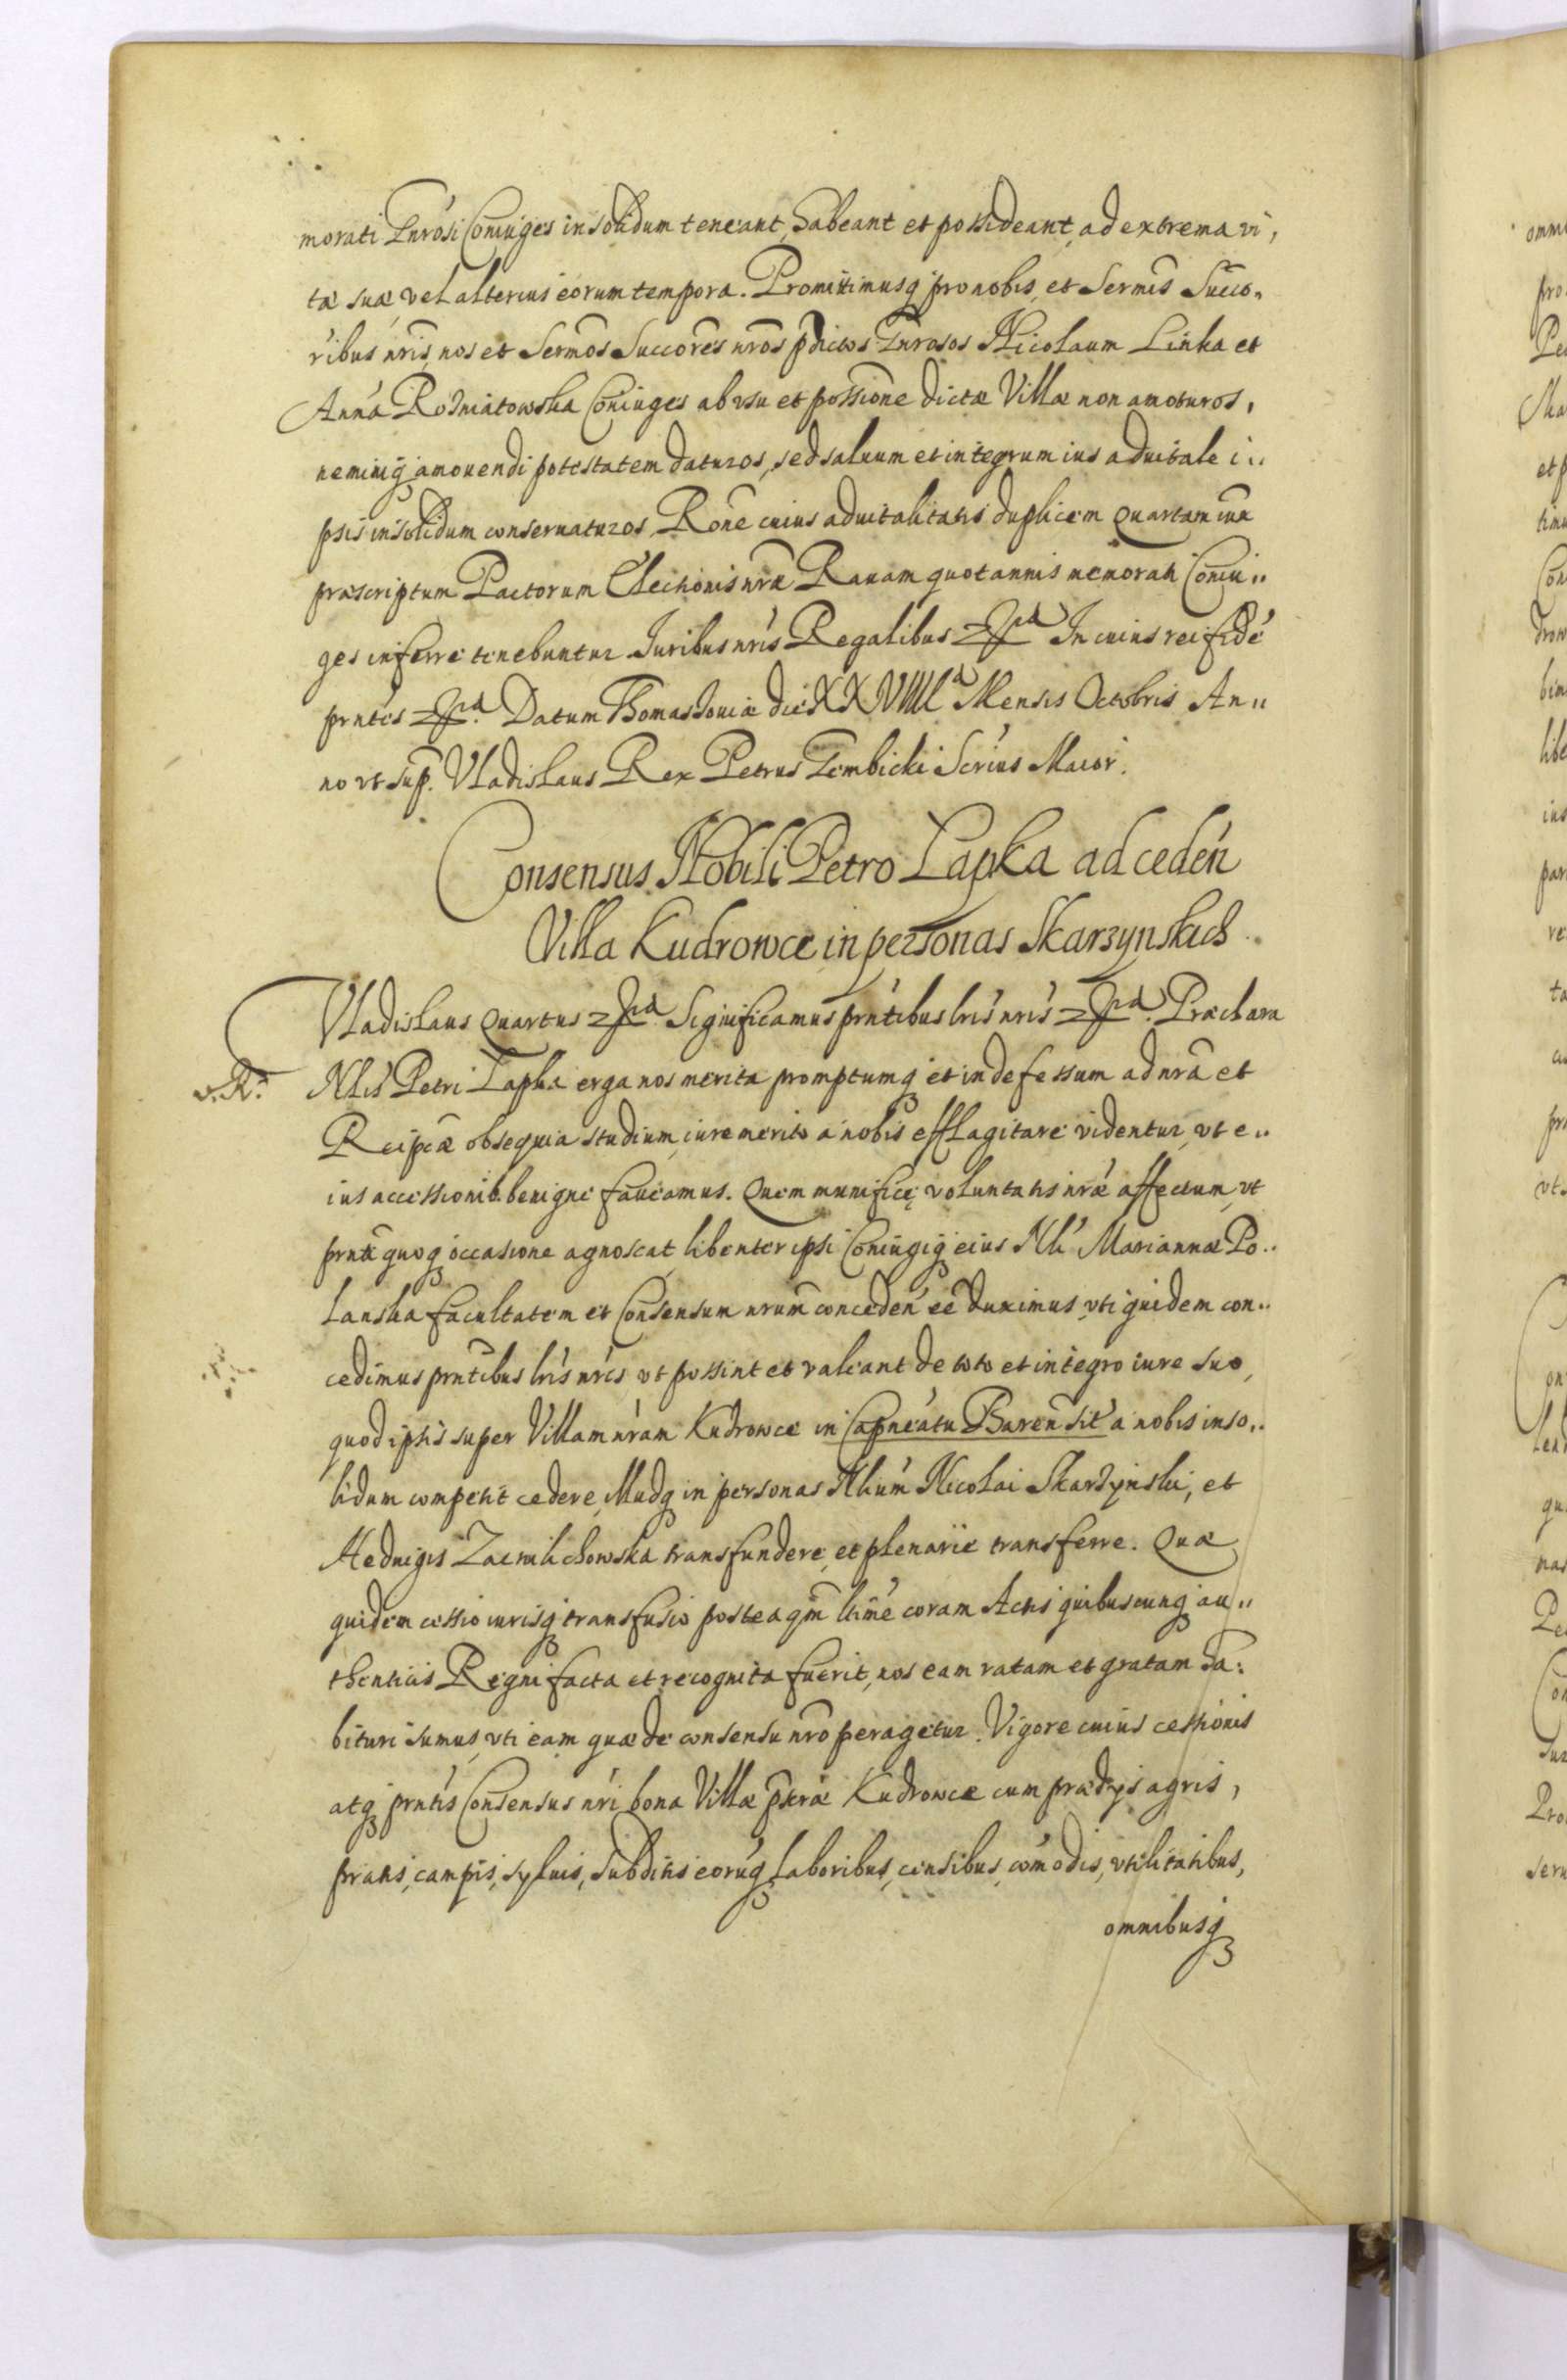 morati Gnrosi Coniuges in solidum teneant, habeant et possideant, ad extrema vi,
tæ suæ, vel alterius eorum tempora. Promittimusq pro nobis, et Sermis Succo,
ribus nris, nos et Sermos Succores nros pdictos Gnrosos Nicolaum Linka et
Anna Rosniatowska Coniuges ab vsu et possione dictæ Villæ non amoturos,
neminiq amouendi potestatem daturos, sed saluum et integrum ius aduitale i..
psis insolidum conseruaturos, Rone cuius aduitalitatis duplicem Quartam iux
præscriptum Pactorum Electionis nræ Rauam quotannis memorati Coniu..
ges inferre tenebuntur Iuribus nris Regalibus In cuius rei fide
prntes Datum Thomassouiæ die XXVIIII Mensis Octobris An..
no vt sup. Vladislaus Rex Petrus Gembicki Scrius Maior.
Consensus Nobili Petro Lapka ad ceden
Villa Kudrowce in personas Skarzynskich
Vladislaus Quartus Significamus prntibus lris nris Præclara
v. R. Nlis Petri Lapka erga nos merita promptumq et indefessum ad nra et
Reipcæ obsequia studium, iure merito a nobis efflagitare videntur, vt e..
ius accessionib. benigne faueamus. Quem munificę voluntatis nræ affectum, vt
prnti quoq occasione agnoscat, libenter ipsi Coniugiq eius Nli Mariannæ Po..
lanska facultatem et Consensum nrum conceden ee duximus, vti quidem con..
cedimus prntibus lris nris vt possint et valeant de toto et integro iure suo,
quod ipsis super Villam nram Kudrowce in Capneatu Baren sit a nobis inso..
lidum competit cedere, Illudq in personas Nlium Nicolai Skarzynski, et
Heduigis Zacwilichowska transfundere, et plenarie transferre. Quæ
quidem cessio iurisq transfusio postea qm ltime coram Actis quibuscunq au..
thenticis Regni facta et recognita fuerit, nos eam ratam et gratam ha:
bituri sumus, vti eam quæ de consensu nro peragetur. Vigore cuius cessionis
atq prntis Consensus nri bona Villæ pscræ Kudrowce cum prædijs agris,
pratis, campis, syluis, subditis eoruq laboribus, censibus, comodis, vtilitatibus,
omnibusq